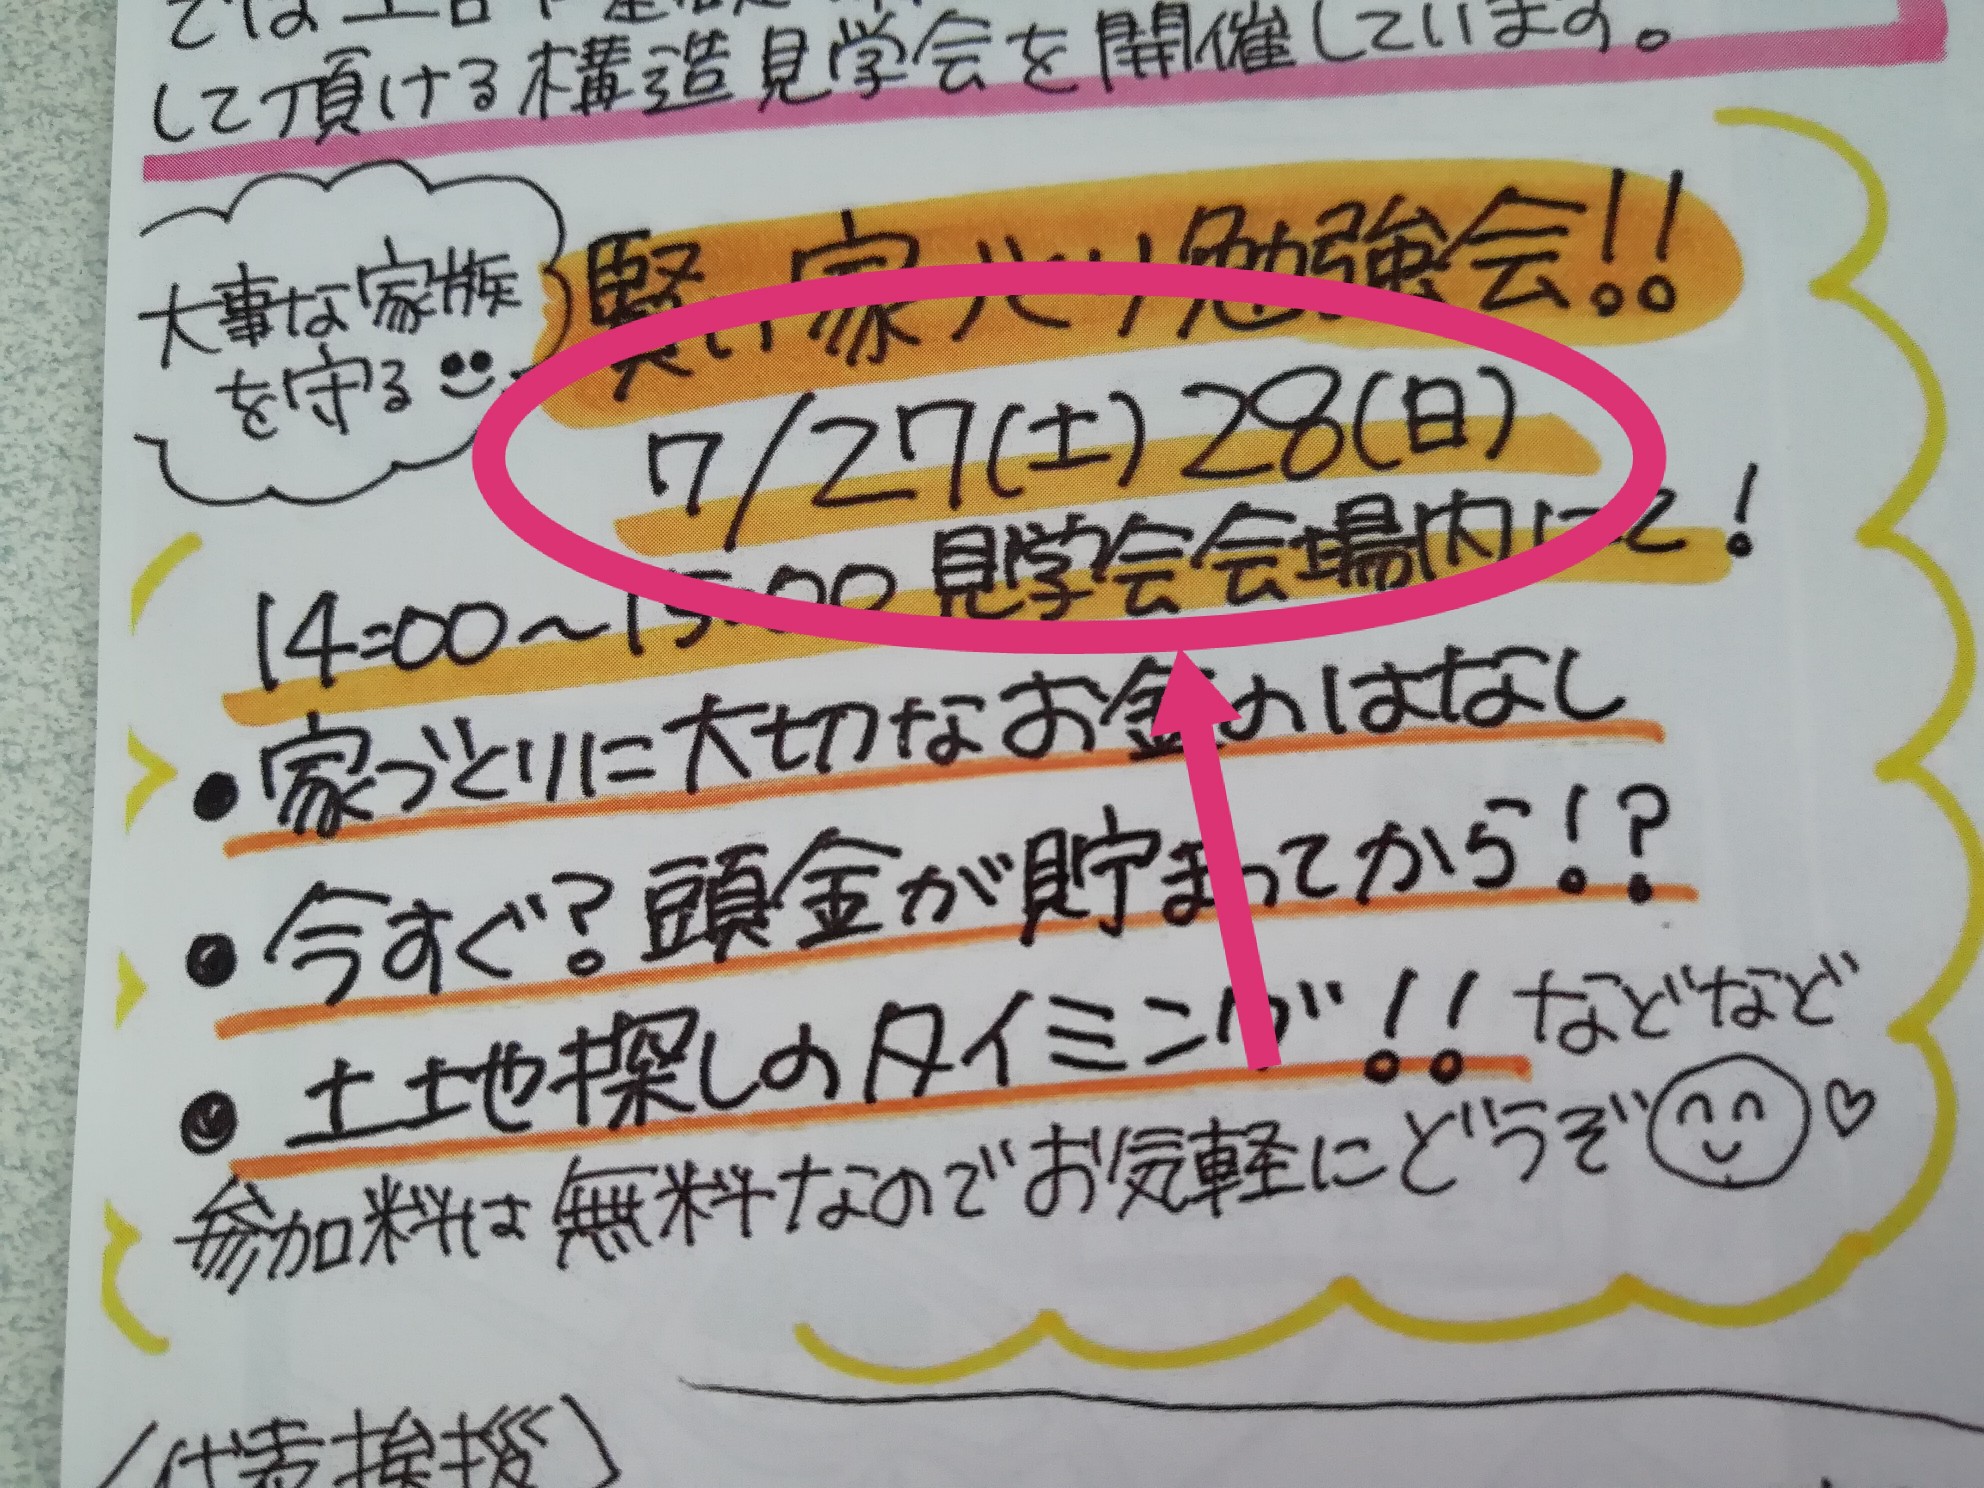 して頂ける構造見学会を開催しています。
大事な家族
を守る
賢い家づくり勉強会!!
7/27(土)28(日)
14:00〜15:00 見学会会場内にて!
・家づくりに大切なお金のはなし
・今すぐ?頭金が貯まってから!?
・土地探しのタイミング!!などなど
参加料は無料なのでお気軽にどうぞ
代表挨拶